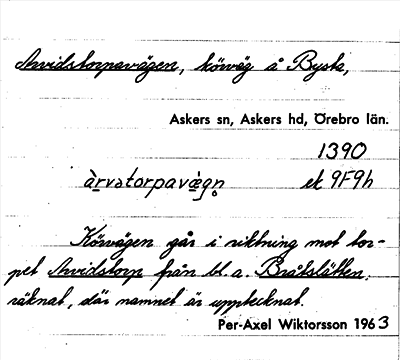 Arvidstorpavägen, körväg å Bysta,
Askers sn, Askers hd, Örebro län.
1390
àrvatorpavä̀gn̥ ek 9F9h
Körvägen går i riktning mot tor-
pet Arvidstorp från bl. a. Bråtslätten,
räknat, där namnet är upptecknat.
Per-Axel Wiktorsson 1963